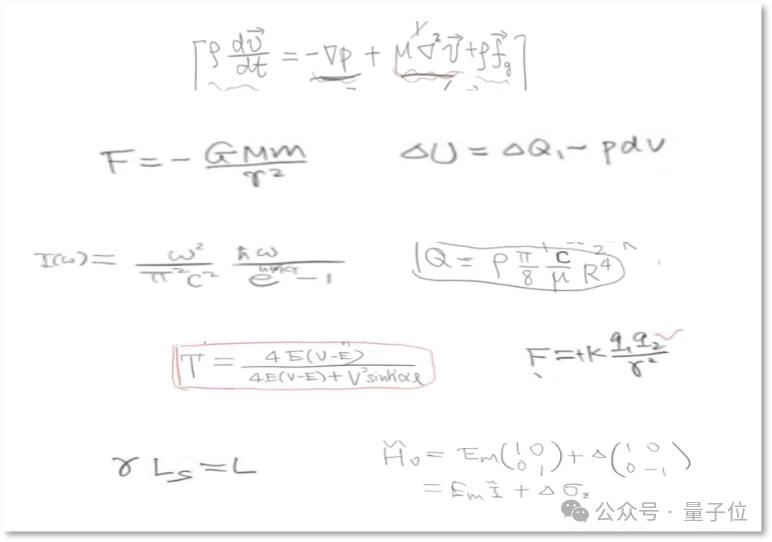 ρ dv⃗/dt = -∇p + μ∇²v⃗ + ρf⃗g
F = - GMm/r²
ΔU = ΔQ, - pdv
I(ω) = ω²/π²c² ħω/e^ħω/kT - 1
Q = ρ π/8 c/μ R⁴
T = 4E(V-E)/4E(V-E) + V²sinh²αl
F = +k q₁q₂/r²
γ Ls = L
Ĥ₀ = Em(1 0 0 1) + Δ(1 0 0 -1)
= Em Ǐ + Δ σz
公众号 · 量子位